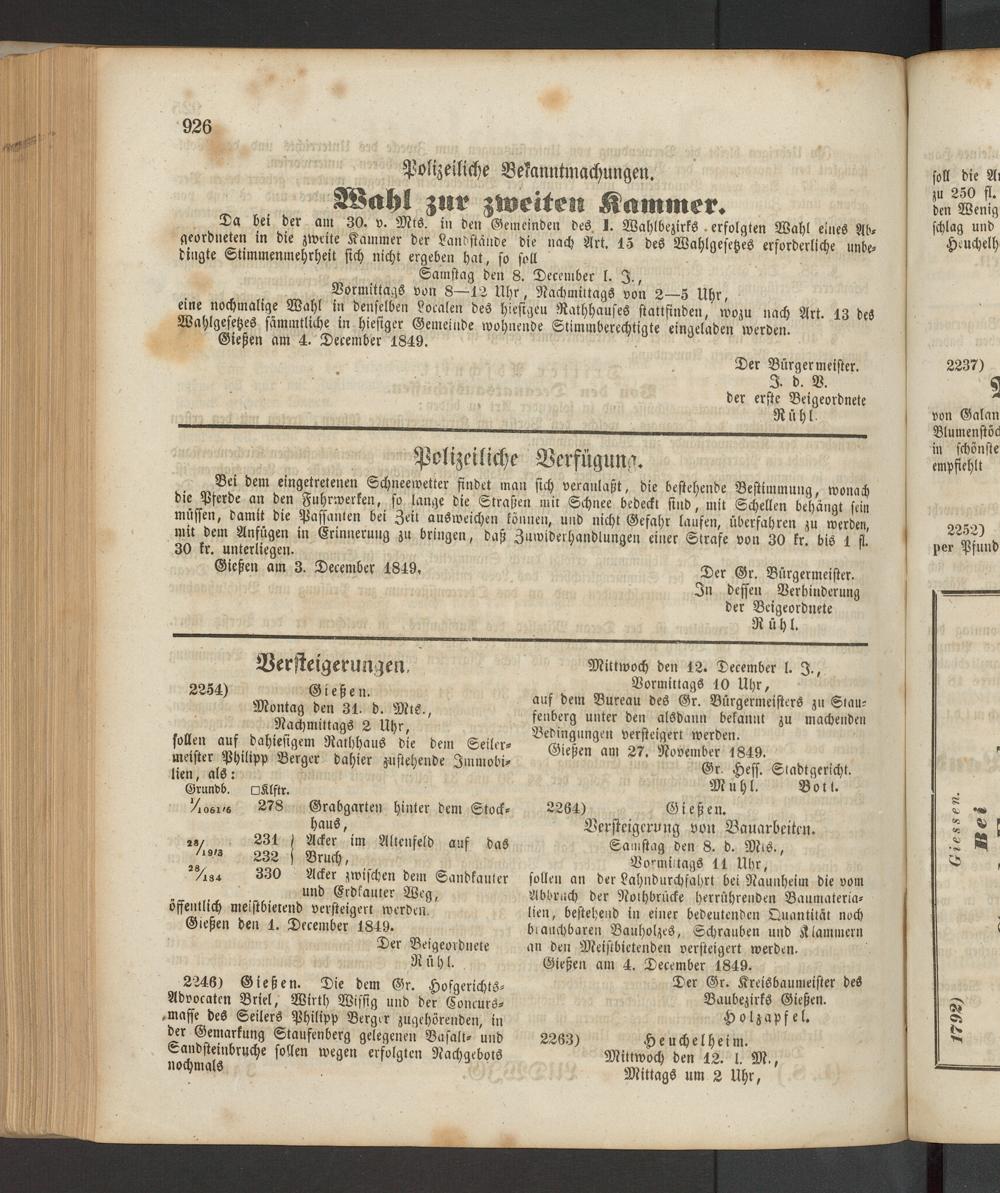 926
Polizeiliche Bekanntmachungen.
Wahl zur zweiten Kammer.
Da bei der am 30. v. Mts. in den Gemeinden des I. Wahlbezirks erfolgten Wahl eines Ab-
geordneten in die zweite Kammer der Landstände die nach Art. 15 des Wahlgesetzes erforderliche unbe-
dingte Stimmenmehrheit sich nicht ergeben hat, so soll
Samstag den 8. December l. J.,
Vormittags von 8—12 Uhr, Nachmittags von 2—5 Uhr,
eine nochmalige Wahl in denselben Localen des hiesigen Rathhauses stattfinden, wozu nach Art. 13 des
Wahlgesetzes sämmtliche in hiesiger Gemeinde wohnende Stimmberechtigte eingeladen werden.
Gießen am 4. December 1849.
Der Bürgermeister.
J. d. V.
der erste Beigeordnete
Rühl.
Polizeiliche Verfügung.
Bei dem eingetretenen Schneewetter findet man sich veranlaßt, die bestehende Bestimmung, wonach
die Pferde an den Fuhrwerken, so lange die Straßen mit Schnee bedeckt sind, mit Schellen behängt sein
müssen, damit die Passanten bei Zeit ausweichen können, und nicht Gefahr laufen, überfahren zu werden,
mit dem Anfügen in Erinnerung zu bringen, daß Zuwiderhandlungen einer Strafe von 30 kr. bis 1 fl.
30 kr. unterliegen.
Gießen am 3. December 1849.
Der Gr. Bürgermeister.
In dessen Verhinderung
der Beigeordnete
Rühl.
Versteigerungen.
2254) Gießen.
Montag den 31. d. Mts.,
Nachmittags 2 Uhr,
sollen auf dahiesigem Rathhaus die dem Seiler-
meister Philipp Berger dahier zustehende Immobi-
lien, als:
Grundb. □Klftr.
1/1061/6 278 Grabgarten hinter dem Stock-
haus,
28/19/3 231 } Acker im Altenfeld auf das
232 } Bruch,
28/184 330 Acker zwischen dem Sandkauter
und Erdkauter Weg,
öffentlich meistbietend versteigert werden.
Gießen den 1. December 1849.
Der Beigeordnete
Rühl.
2246) Gießen. Die dem Gr. Hofgerichts-
Advocaten Briel, Wirth Wissig und der Concurs-
masse des Seilers Philipp Berger zugehörenden, in
der Gemarkung Staufenberg gelegenen Basalt- und
Sandsteinbruche sollen wegen erfolgten Nachgebots
nochmals
Mittwoch den 12. December l. J.,
Vormittags 10 Uhr,
auf dem Bureau des Gr. Bürgermeisters zu Stau-
fenberg unter den alsdann bekannt zu machenden
Bedingungen versteigert werden.
Gießen am 27. November 1849.
Gr. Hess. Stadtgericht.
Mühl. Bott.
2264) Gießen.
Versteigerung von Bauarbeiten.
Samstag den 8. d. Mts.,
Vormittags 11 Uhr,
sollen an der Lahndurchfahrt bei Naunheim die vom
Abbruch der Nothbrücke herrührenden Baumateria-
lien, bestehend in einer bedeutenden Quantität noch
brauchbaren Bauholzes, Schrauben und Klammern
an den Meistbietenden versteigert werden.
Gießen am 4. December 1849.
Der Gr. Kreisbaumeister des
Baubezirks Gießen.
Holzapfel.
2263) Heuchelheim.
Mittwoch den 12. l. M.,
Mittags um 2 Uhr,
soll die
zu 250 fl.
den Wenig
schlag und
Heuchelh
2237)
von Galan
Blumenstöc
in schönste
empfiehlt
2252)
per Pfund
Giessen.
Bei
1792)